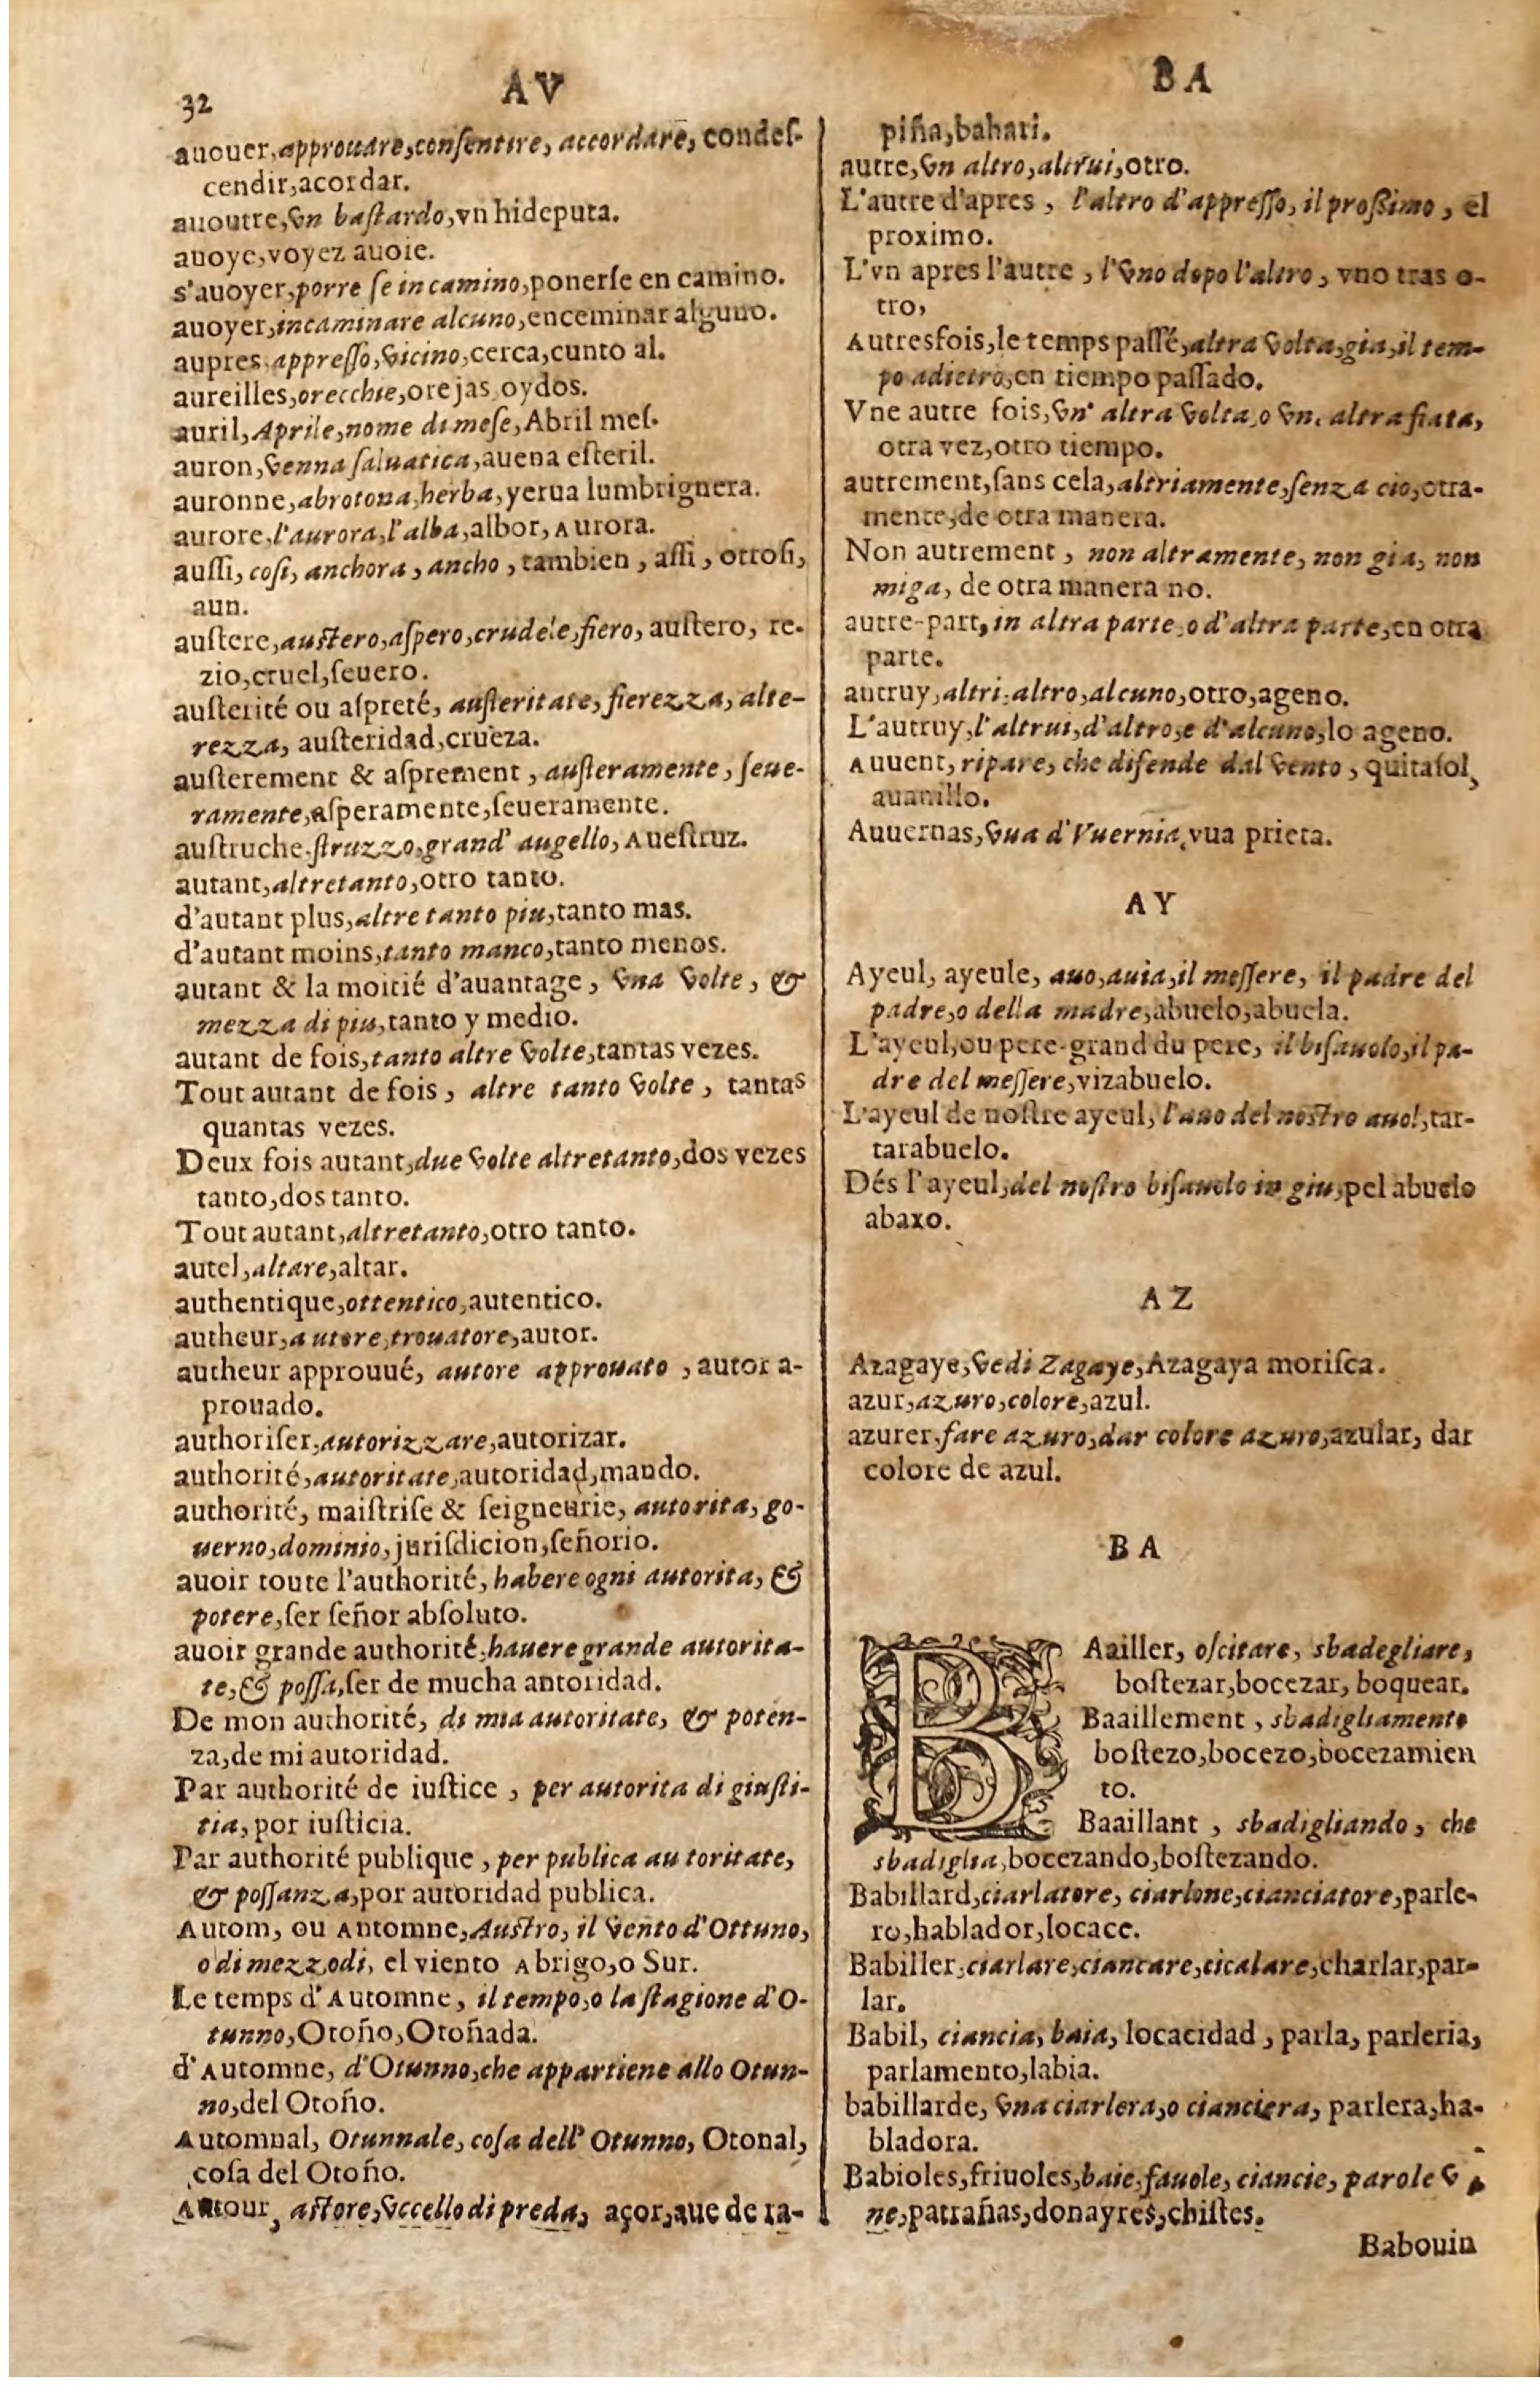 32
AV
auouer, approuare, consentire, accordare, condeſ-
cendir, acordar.
auoutre, vn baſtardo, vn hideputa.
auoye, voyez auoie.
s'auoyer, porre ſe in camino, ponerſe en camino.
auoyer, incaminare alcuno, enceminar alguno.
aupres, appreſſo, vicino, cerca, cunto al.
aureilles, orecchie, orejas, oydos.
auril, Aprile, nome di meſe, Abril meſ.
auron, venna ſaluatica, auena eſteril.
auronne, abrotona, herba, yerua lumbriguera.
aurore, l'aurora, l'alba, albor, Aurora.
auſſi, coſi, anchora, ancho, tambien, aſſi, otroſi,
aun.
auſtere, auſtero, aſpero, crudele, fiero, auſtero, re-
zio, cruel, ſeuero.
auſterité ou aſpreté, auſteritate, fierezza, alte-
rezza, auſteridad, crueza.
auſterement & aſprement, auſteramente, ſeue-
ramente, aſperamente, ſeueramente.
auſtruche, ſtruzzo, grand' augello, Aueſtruz.
autant, altretanto, otro tanto.
d'autant plus, altre tanto piu, tanto mas.
d'autant moins, tanto manco, tanto menos.
autant & la moitié d'auantage, vna volte, &
mezza di piu, tanto y medio.
autant de fois, tanto altre volte, tantas vezes.
Tout autant de fois, altre tanto volte, tantas
quantas vezes.
Deux fois autant, due volte altretanto, dos vezes
tanto, dos tanto.
Tout autant, altretanto, otro tanto.
autel, altare, altar.
authentique, ottentico, autentico.
autheur, autore, trouatore, autor.
autheur approuué, autore approuato, autor a-
prouado.
authoriſer, autorizzare, autorizar.
authorité, autoritate, autoridad, mando.
authorité, maiſtriſe & ſeigneurie, autorita, go-
uerno, dominio, juriſdicion, ſeñorio.
auoir toute l'authorité, habere ogni autorita, &
potere, ſer ſeñor abſoluto.
auoir grande authorité, hauere grande autorita-
te, & poſſa, ſer de mucha antoridad.
De mon authorité, di mia autoritate, & poten-
za, de mi autoridad.
Par authorité de iuſtice, per autorita di giuſti-
tia, por iuſticia.
Par authorité publique, per publica au toritate,
& poſſanza, por autoridad publica.
Autom, ou Antomne, Auſtro, il vento d'Ottuno,
o di mezzodi, el viento Abrigo, o Sur.
Le temps d'Automne, il tempo, o la ſtagione d'O-
tunno, Otoño, Otoñada.
d'Automne, d'Otunno, che appartiene allo Otun-
no, del Otoño.
Automnal, Otunnale, coſa dell' Otunno, Otonal,
coſa del Otoño.
Autour, aſtore, vccello di preda, açor, aue de ra-
BA
piña, bahari.
autre, vn altro, altrui, otro.
L'autre d'apres, l'altro d'appreſſo, il proſſimo, el
proximo.
L'vn apres l'autre, l'vno dopo l'altro, vno tras o-
tro,
Autresfois, le temps paſſé, altra volta, gia, il tem-
po adietro, en tiempo paſſado.
Vne autre fois, vn' altra volta, o vn. altra fiata,
otra vez, otro tiempo.
autrement, ſans cela, altriamente, ſenza cio, otra-
mente, de otra manera.
Non autrement, non altramente, non gia, non
miga, de otra manera no.
autre-part, in altra parte, o d'altra parte, en otra
parte.
autruy, altri, altro, alcuno, otro, ageno.
L'autruy, l'altrui, d'altro, e d'alcuno, lo ageno.
Auuent, ripare, che difende dal vento, quitaſol,
auanillo.
Auuernas, vua d'Vuernia, vua prieta.
AY
Ayeul, ayeule, auo, auia, il meſſere, il padre del
padre, o della madre, abuelo, abuela.
L'ayeul, ou pere-grand du pere, il biſauolo, il pa-
dre del meſſere, vizabuelo.
L'ayeul de noſtre ayeul, l'auo del noſtro auol, tar-
tarabuelo.
Dés l'ayeul, del noſtro biſauolo in giu, pel abuelo
abaxo.
AZ
Azagaye, vedi Zagaye, Azagaya moriſca.
azur, azuro, colore, azul.
azurer, fare azuro, dar colore azuro, azular, dar
colore de azul.
BA
BAailler, oſcitare, sbadegliare,
boſtezar, bocezar, boquear.
Baaillement, sbadigliamento
boſtezo, bocezo, bocezamien
to.
Baaillant, sbadigliando, che
sbadiglia, bocezando, boſtezando.
Babillard, ciarlatore, ciarlone, cianciatore, parle-
ro, hablador, locace.
Babiller, ciarlare, ciancare, cicalare, charlar, par-
lar.
Babil, ciancia, baia, locacidad, parla, parleria,
parlamento, labia.
babillarde, vna ciarlera, o cianciera, parlera, ha-
bladora.
Babioles, friuoles, baie, fauole, ciancie, parole v
ne, patrañas, donayres, chiſtes.
Babouin